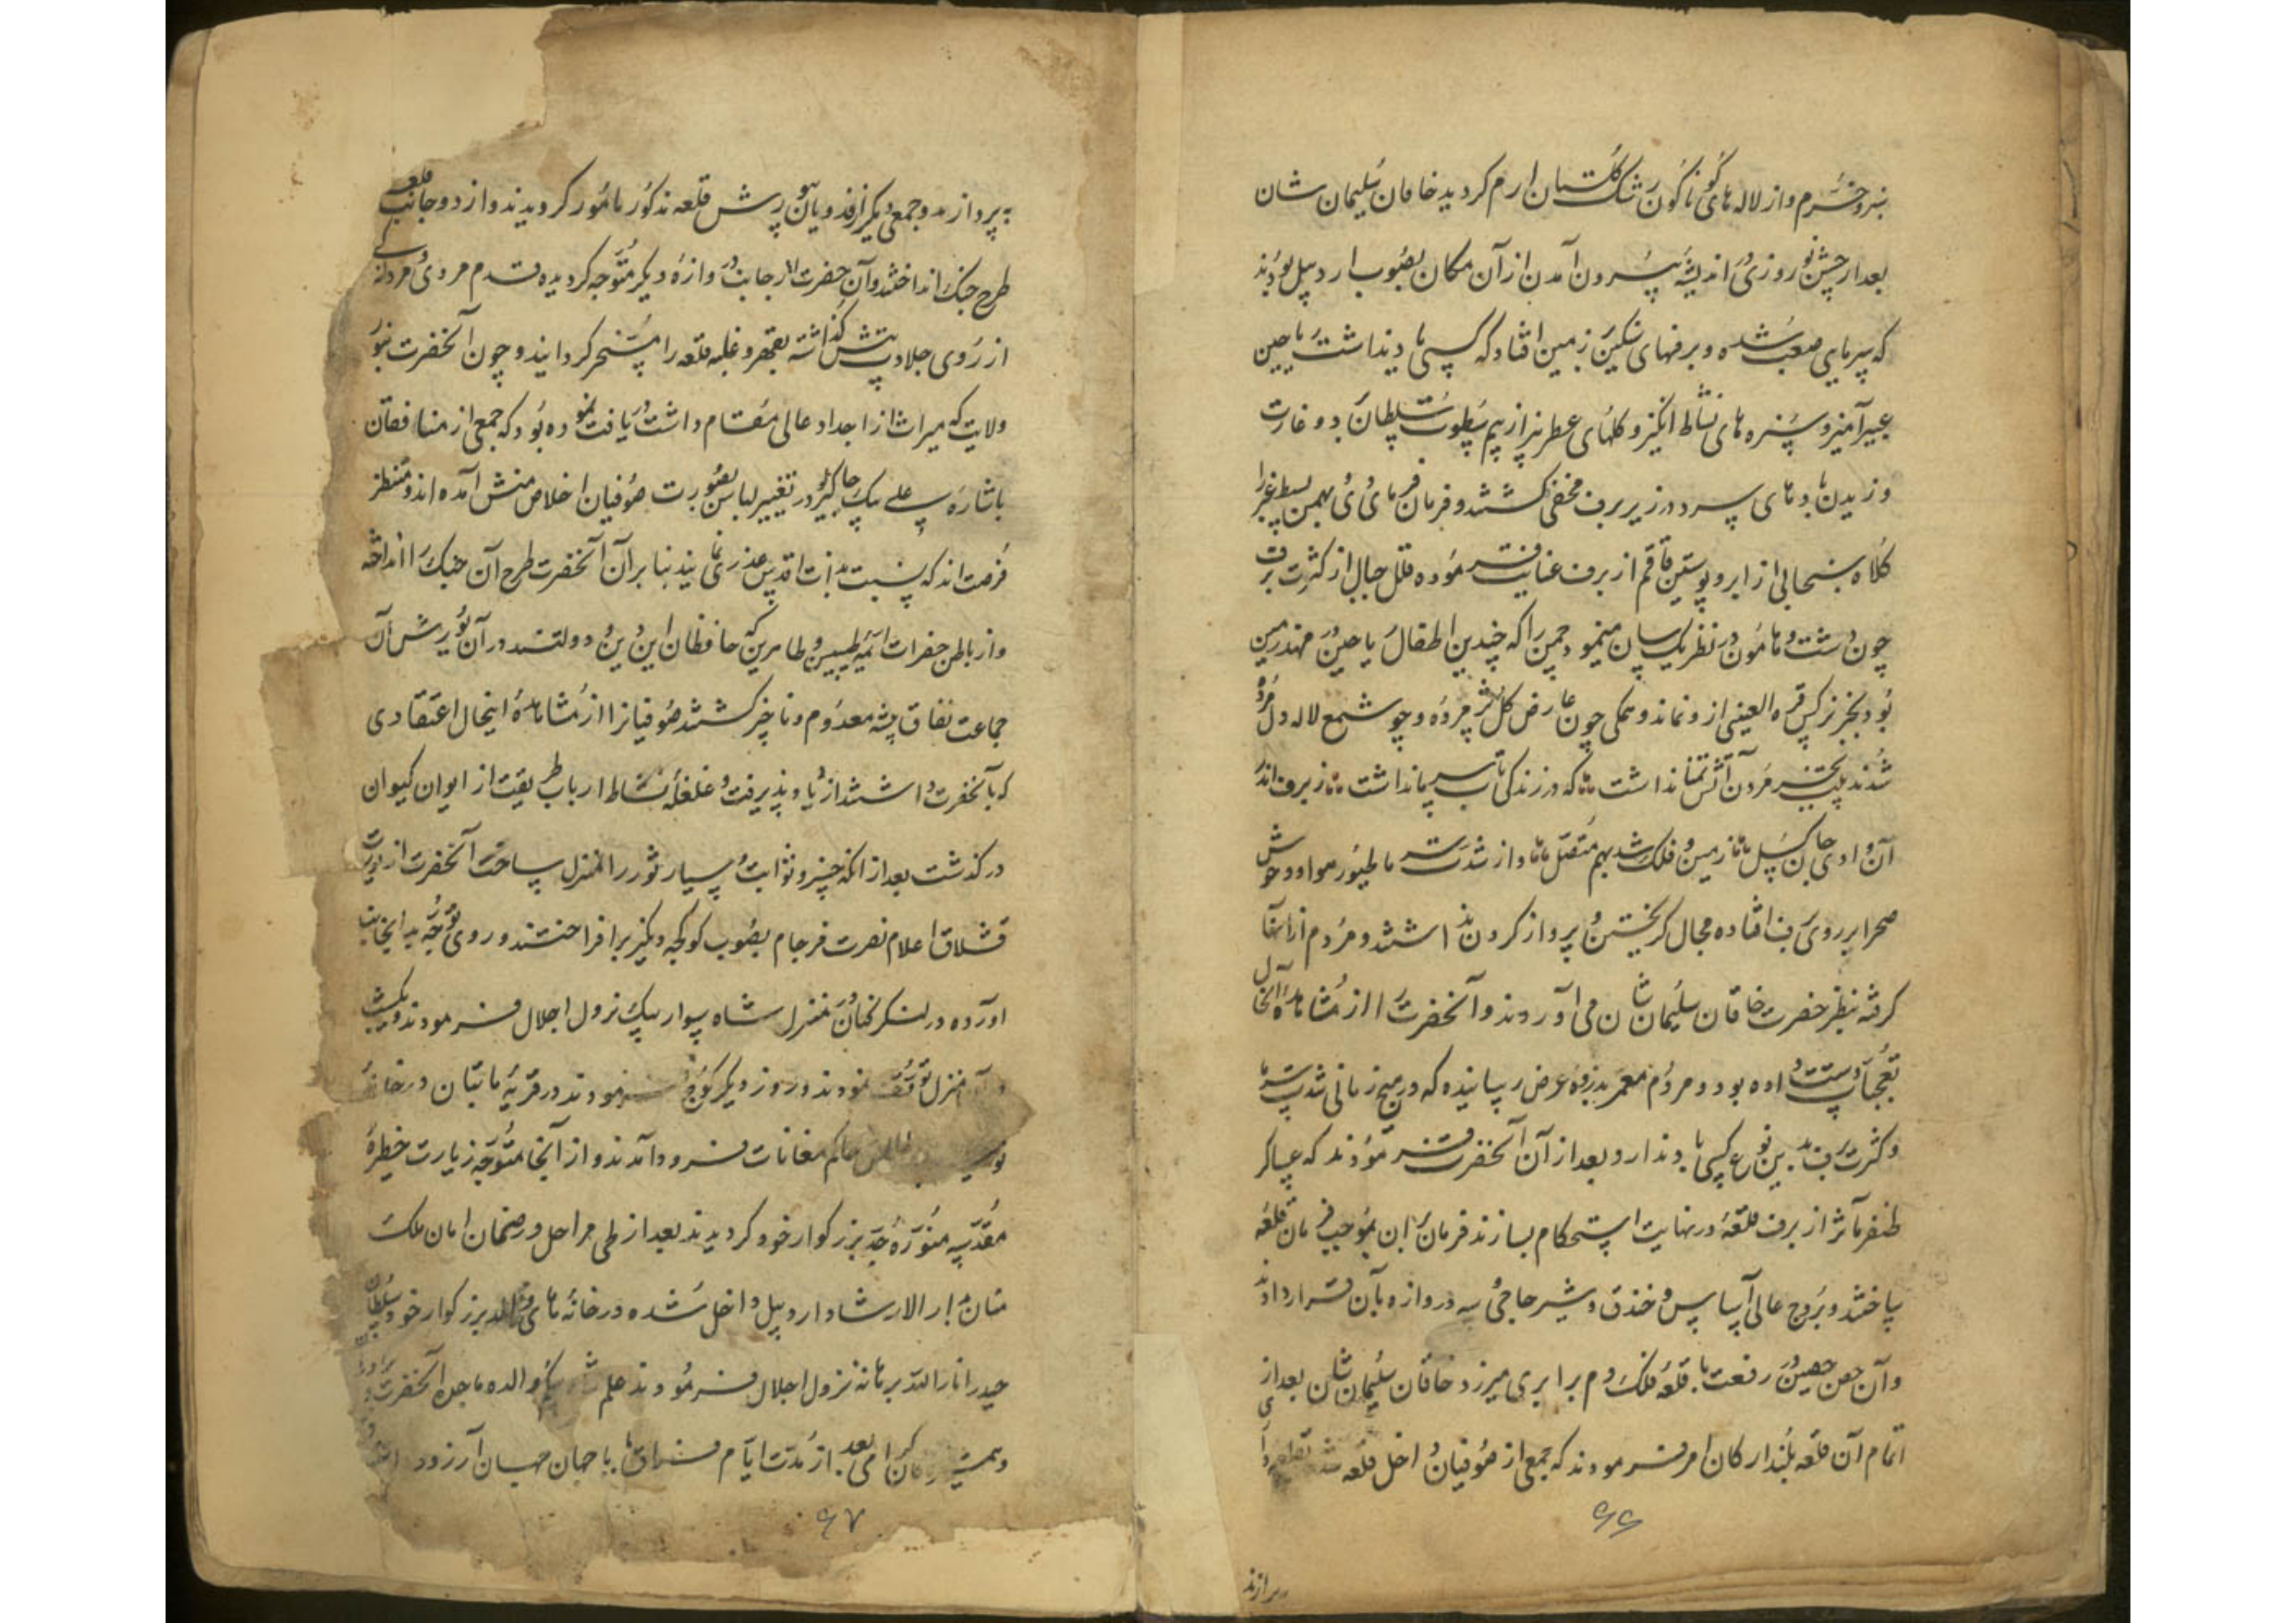 سبز و خرم و از لاله های گوناگون رشک گلستان ارم کردید خاقان سلیمان شان
بعد از جشن نوروزی در اندیشه بیرون آمدن از آن مکان بصوب اردبیل بودند
که سرمایی صعب شده و برفهای سنکین بر زمین افتاد که کسی یاد نداشت ریاحین
عبیرآمیز و سبزه های نشاط انکیز و کلهای عطربیز از بیم سطوت سلطان دو غارت
وزیدن بادهای سرد در زیر برف مخفی کشتند و فرمان فرمای دی و بهمن بسیط غبرا را
کلاه سنجابی از ابر و پوستین قاقم از برف عنایت فرموده قلل جبال از کثرت برف
چون دشت و هامون در نظر یکسان مینمود چمن را که چندین اطفال ریاحین در مهد زمین
بود بجز نرکس قرة العینی ازو نماند و همکی چون عارض کل پژمرده و چو شمع لاله دل مرده
شدند بجز مردن آتش تمنا نداشت که در زندکی تاب سرما نداشت ز برف اندر
آن وادی جان کسل زمین و فلک شد بهم متصل و از شدت سرما طیور هوا و وحوش
صحرا بر روی برف افتاده مجال کریختن و پرواز کردن نداشتند و مردم از آنها
کرفته بنظر حضرت خاقان سلیمان شان می آوردند و آنحضرت را از مشاهده آنحال
تعجبها دست داده بود و مردم معمر بذروه عرض رسانیده که در هیچ زمانی شدت سرما
و کثرت برف بدین نوع کسی یاد ندارد و بعد از آن آنحضرت فرمودند که عساکر
ظفر مآثر از برف قلعه در نهایت استحکام بسازند فرمان بران بموجب فرمان قلعه
ساختند و بروج عالی اساس و خندق و شیر حاجی و دروازه بآن قرار دادند
و آن حصن حصین در رفعت با قلعه فلک دم برابری میزد خاقان سلیمان شان بعد از
اتمام آن قلعه بلند ارکان امر فرمودند که جمعی از صوفیان داخل قلعه
۶۶
پردازند
پردازند و جمعی دیکر از فدویان بیورش قلعه مذکور مامور کردیدند و از دو جانب قلعه
طرح جنک انداختند و آن حضرت از جانب دروازه دیکر متوجه کردیده قدم مردی و مردانکی
از روی جلادت پیش کذاشته بقهر و غلبه قلعه را مسخر کردانیدند و چون آنحضرت بنور
ولایت که میراث از اجداد عالی مقام داشت دریافت نموده بود که جمعی از منافقان
باشاره علی بیک چاکیرلو در تغییر لباس بصورت صوفیان اخلاص منش آمده اند و منتظر
فرصت اند که نسبت بذات اقدس غدری نمایند بنا بر آن آنحضرت طرح آن جنک را انداخته
و از باطن حضرات ائمه طیبین و طاهرین که حافظان این دین و دولتند در آن یورش آن
جماعت نفاق پیشه معدوم و ناچیز کشتند صوفیانرا از مشاهده اینحال اعتقادی
که بآنحضرت داشتند ازدیاد پذیرفت و غلغله نشاط ارباب طریقت از ایوان کیوان
درکذشت بعد از آنکه خسرو ثوابت و سیار ثور را منزل ساخت آنحضرت از یورت
قشلاق اعلام نصرت فرجام بصوب کوکجه دنکیز برافراختند و روی توجه بدانجانب
آورده در لنکرکنان در منزل شاه سوار بیک نزول اجلال فرمودند و یکشب
در آن منزل توقف نمودند و روز دیکر کوچ فرمودند در قریه ماهتان در خانه
حاکم مغانات فرود آمدند و از آنجا متوجه زیارت خطیره
مقدسه منوره جد بزرکوار خود کردیدند بعد از طی مراحل در ضمان امان ملک
منان بدار الارشاد اردبیل داخل شده در خانه های والد بزرکوار خود سلطان
حیدر انار الله برهانه نزول اجلال فرمودند علم شاه بیکم والده ماجده آنحضرت
بعد از مدت ایام فراق با جهان جهان آرزو
۶۷